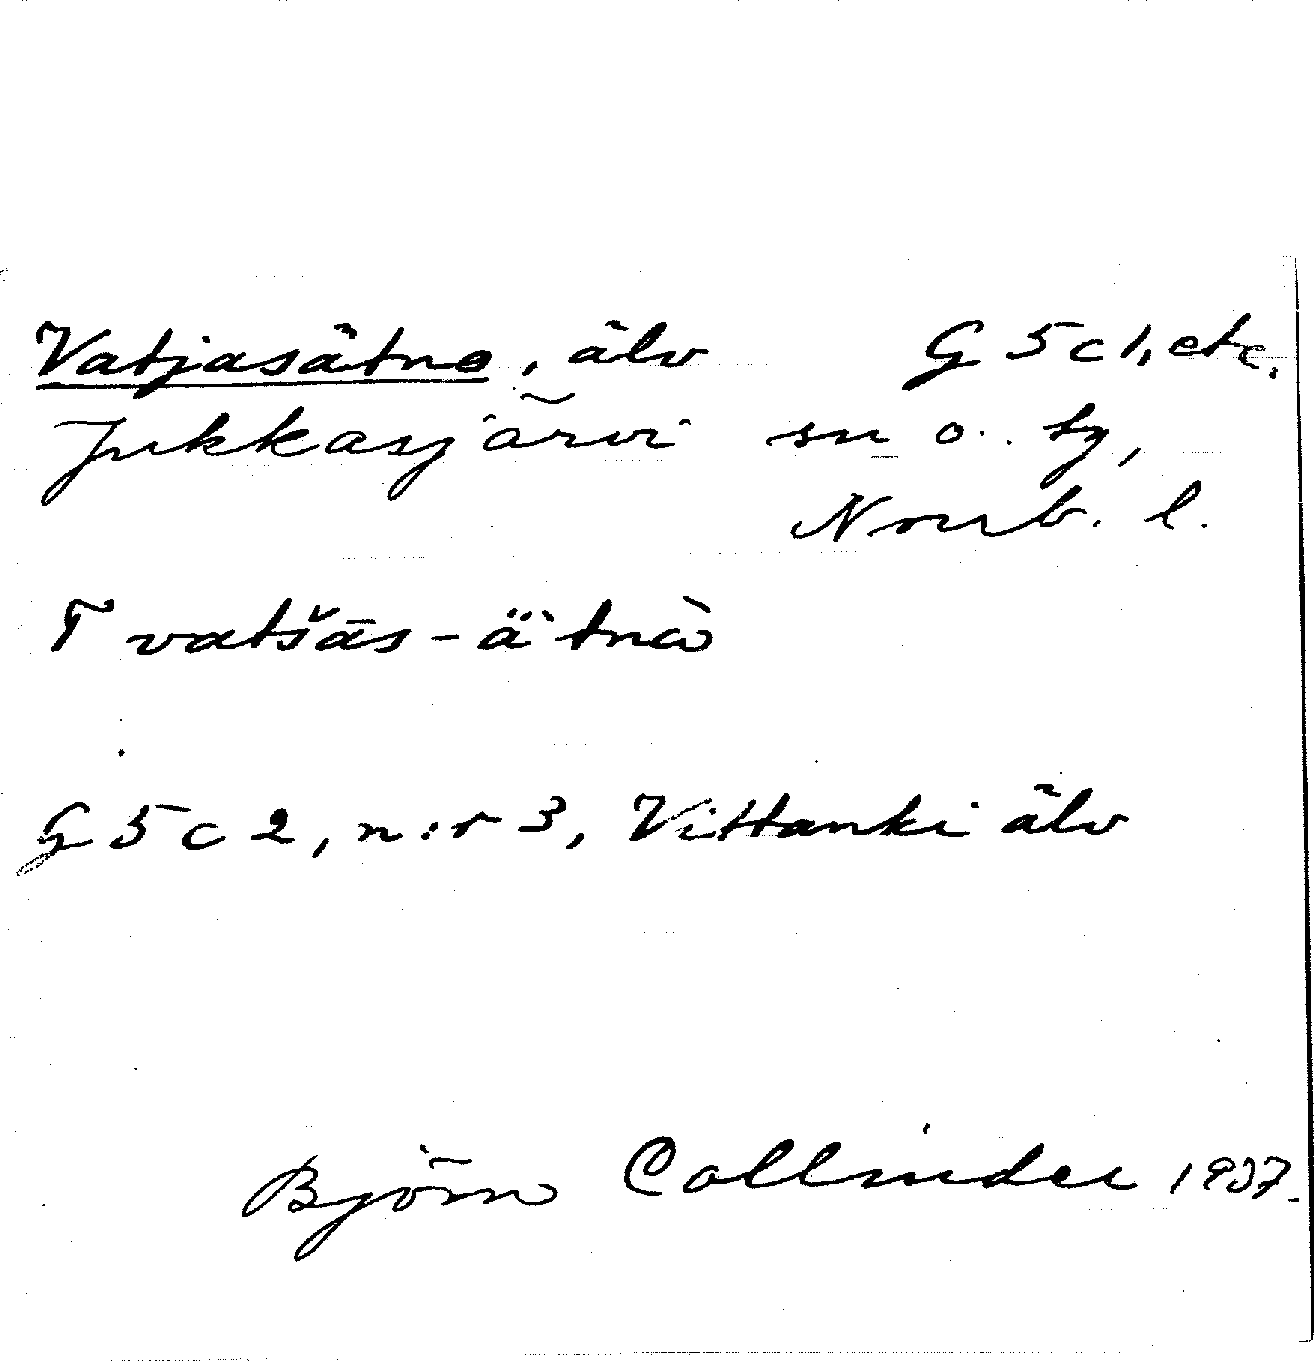 Vatjasätno, älv G 5 c 1, etc.
Jukkasjärvi sn o. tg,
Norrb. l.
T vatšās-ä̀tnà
G 5 c 2, n:r 3, Vittanki älv
Björn Collinder 1937.